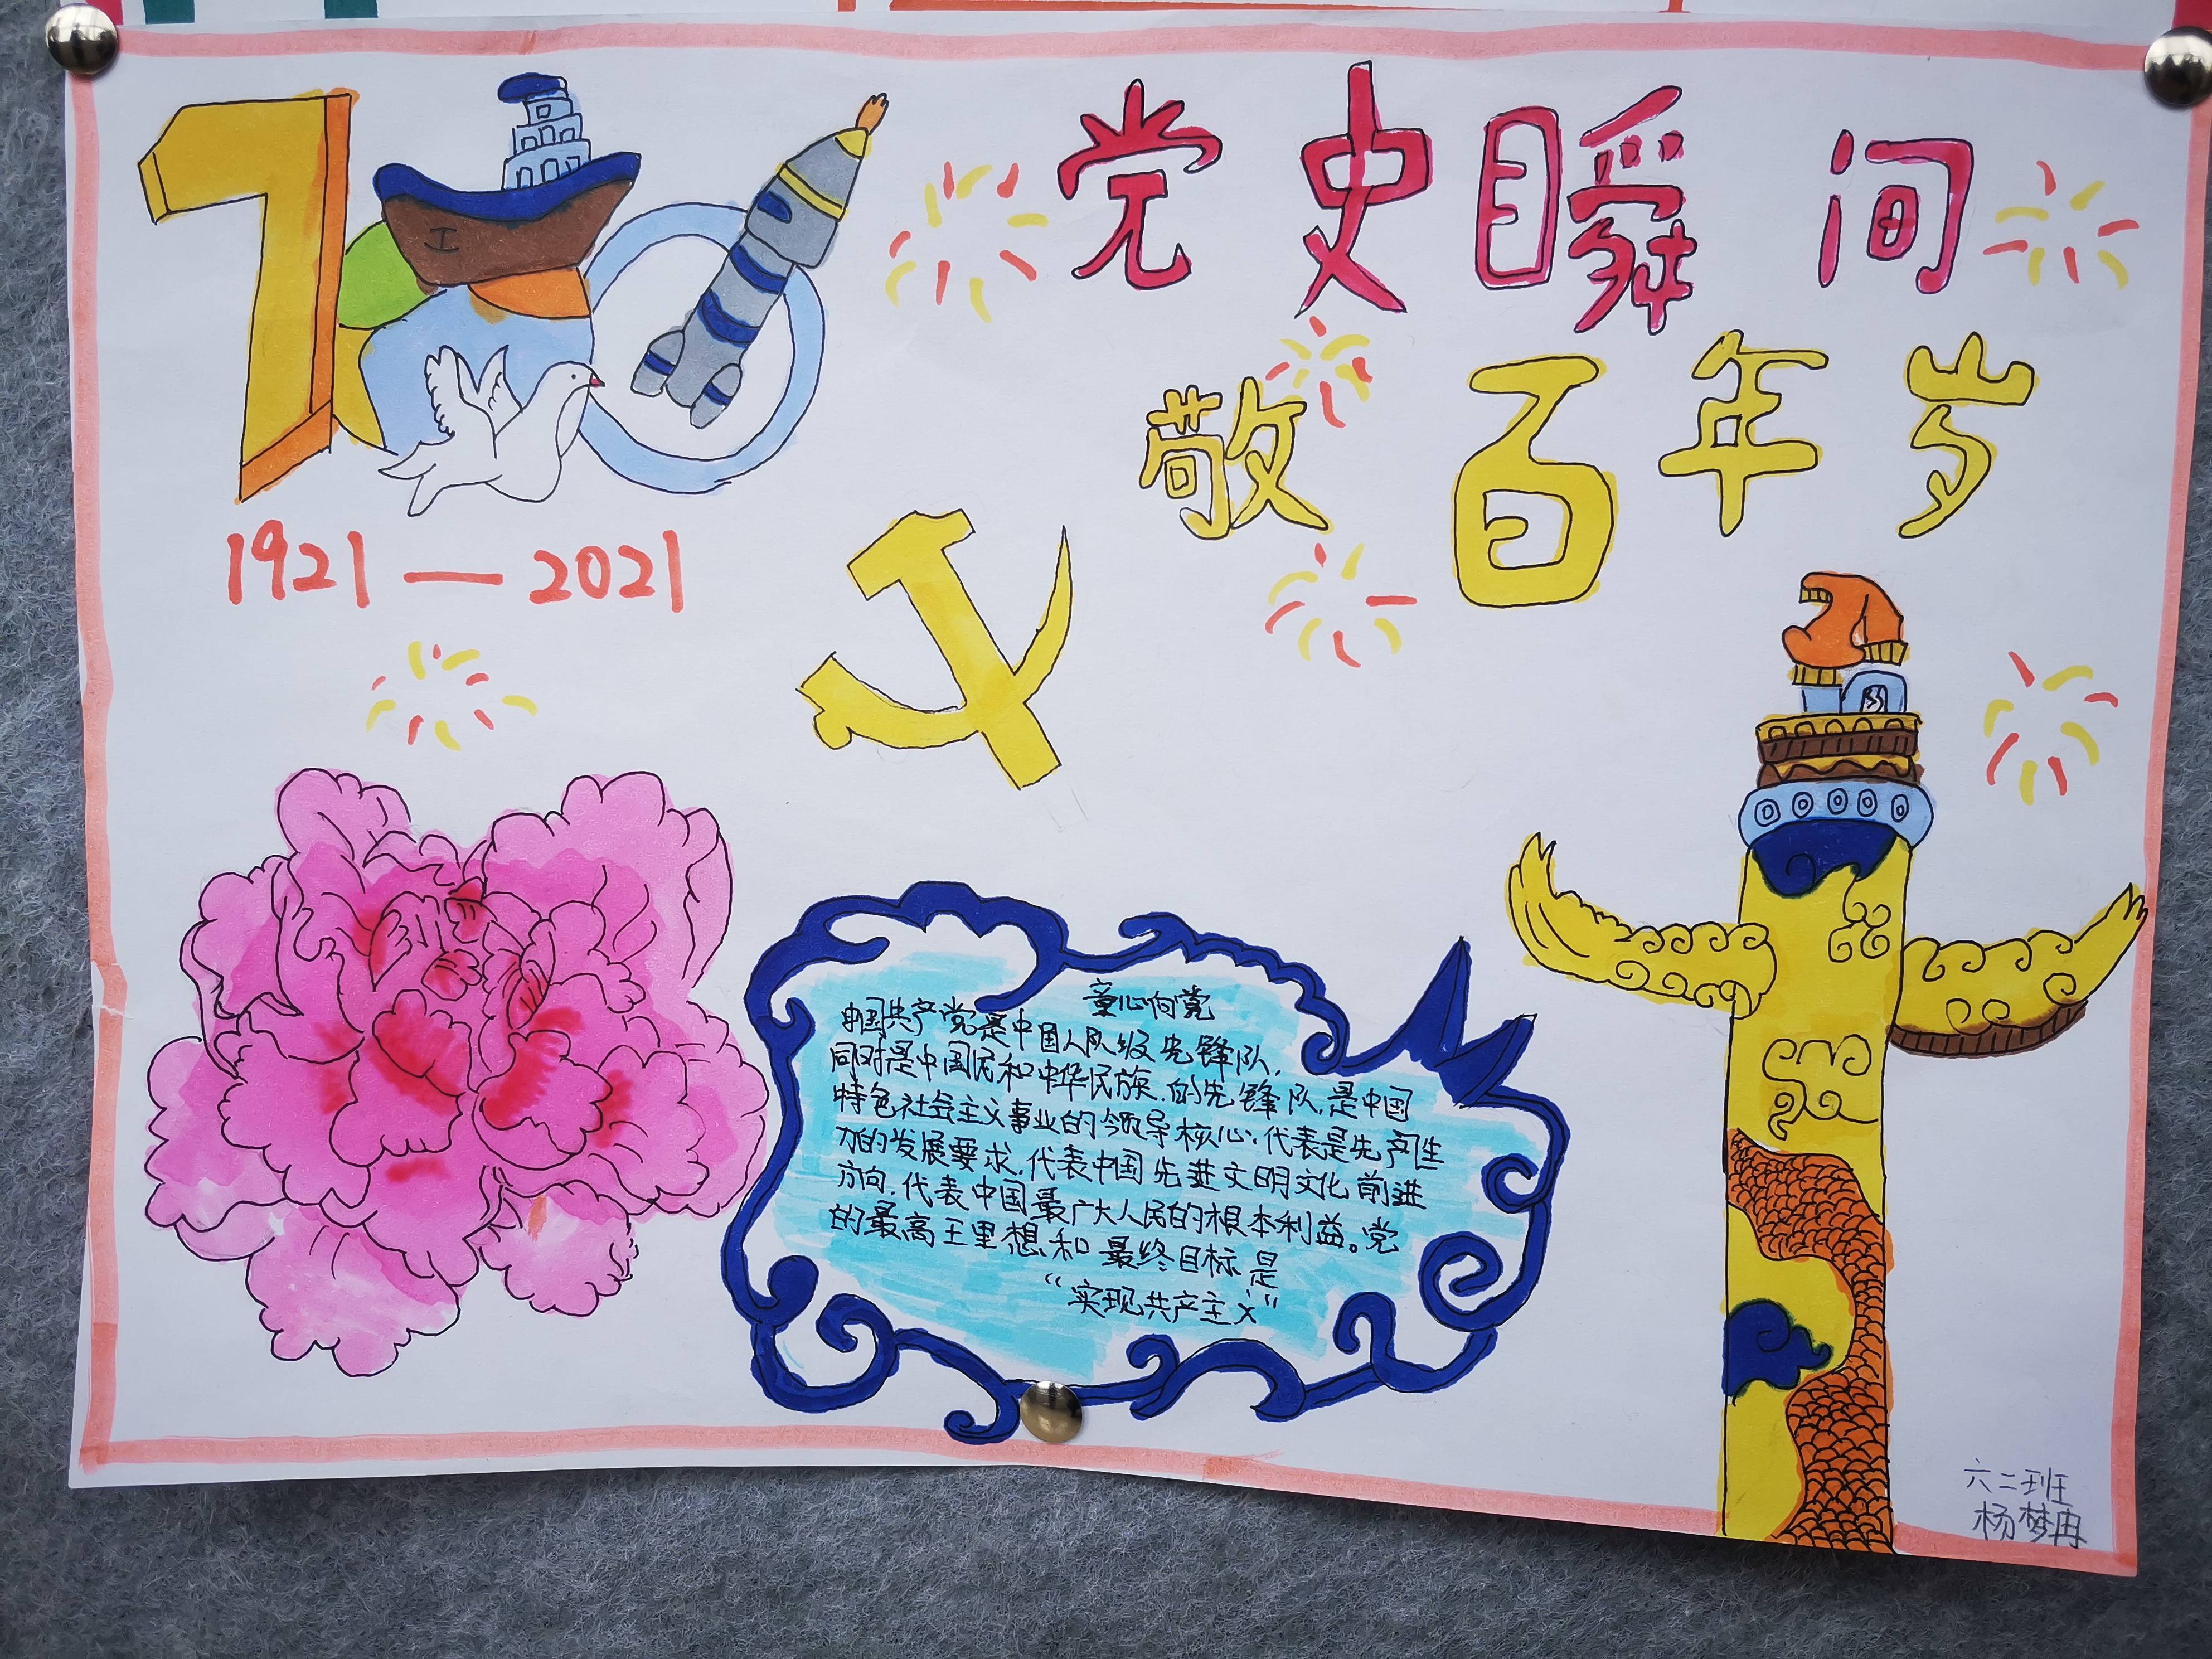 100
党史瞬间
敬百年岁
1921—2021
工
童心向党
中国共产党是中国人队级先锋队,
同时是中国民和中华民族,的先锋队,是中国
特色社会主义事业的领导核心,代表是先产生
力的发展要求,代表中国先进文明文化前进
方向,代表中国最广大人民的根本利益。党
的最高王里想和最终目标是
“实现共产主义”
六二班
杨梦冉